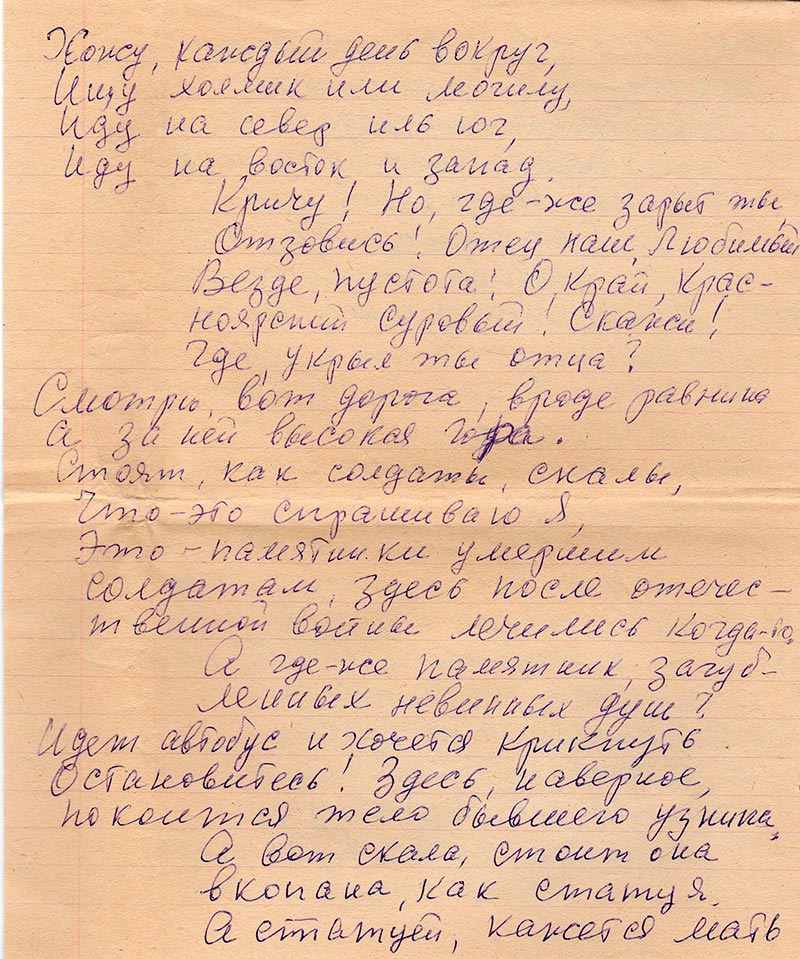 Хожу, каждый день вокруг,
Ищу холмик или могилу,
Иду на север иль юг,
Иду на восток и запад.
Кричу! Но, где-же зарыт ты,
Отзовись! Отец наш, Любимый
Везде, пустота! О, Край, Крас-
ноярский суровый! Скажи!
Где, укрыл ты отца?
Смотрю, вот дорога, вроде равнина
а за ней высокая гора.
Стоят, как солдаты, скалы,
Что-это спрашиваю Я,
Это - памятники умершим
солдатам, здесь после отечес-
твенной войны лечились когда-то.
А где-же памятник, загуб-
ленных невинных душ?
Идет автобус и хочется Крикнуть
Остановитесь! Здесь, наверное,
покоится тело бывшего узника,
А вот скала, стоит она
вкопана, как статуя.
А статуей, кажется мать